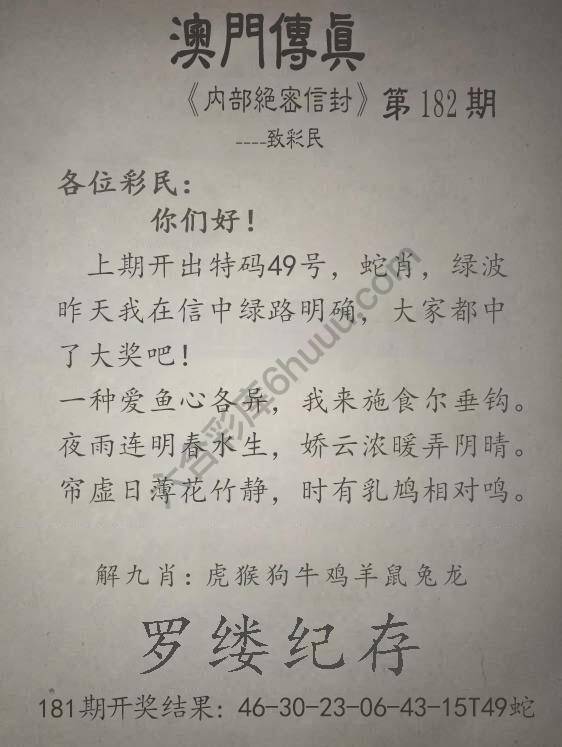 澳門傳眞
《内部絕密信封》第182期
----致彩民
各位彩民：
你们好！
上期开出特码49号，蛇肖，绿波
昨天我在信中绿路明确，大家都中
了大奖吧！
一种爱鱼心各异，我来施食尔垂钩。
夜雨连明春水生，娇云浓暖弄阴晴。
帘虚日薄花竹静，时有乳鸠相对鸣。
解九肖：虎猴狗牛鸡羊鼠兔龙
罗缕纪存
181期开奖结果：46-30-23-06-43-15T49蛇
六合彩库6huuu.com